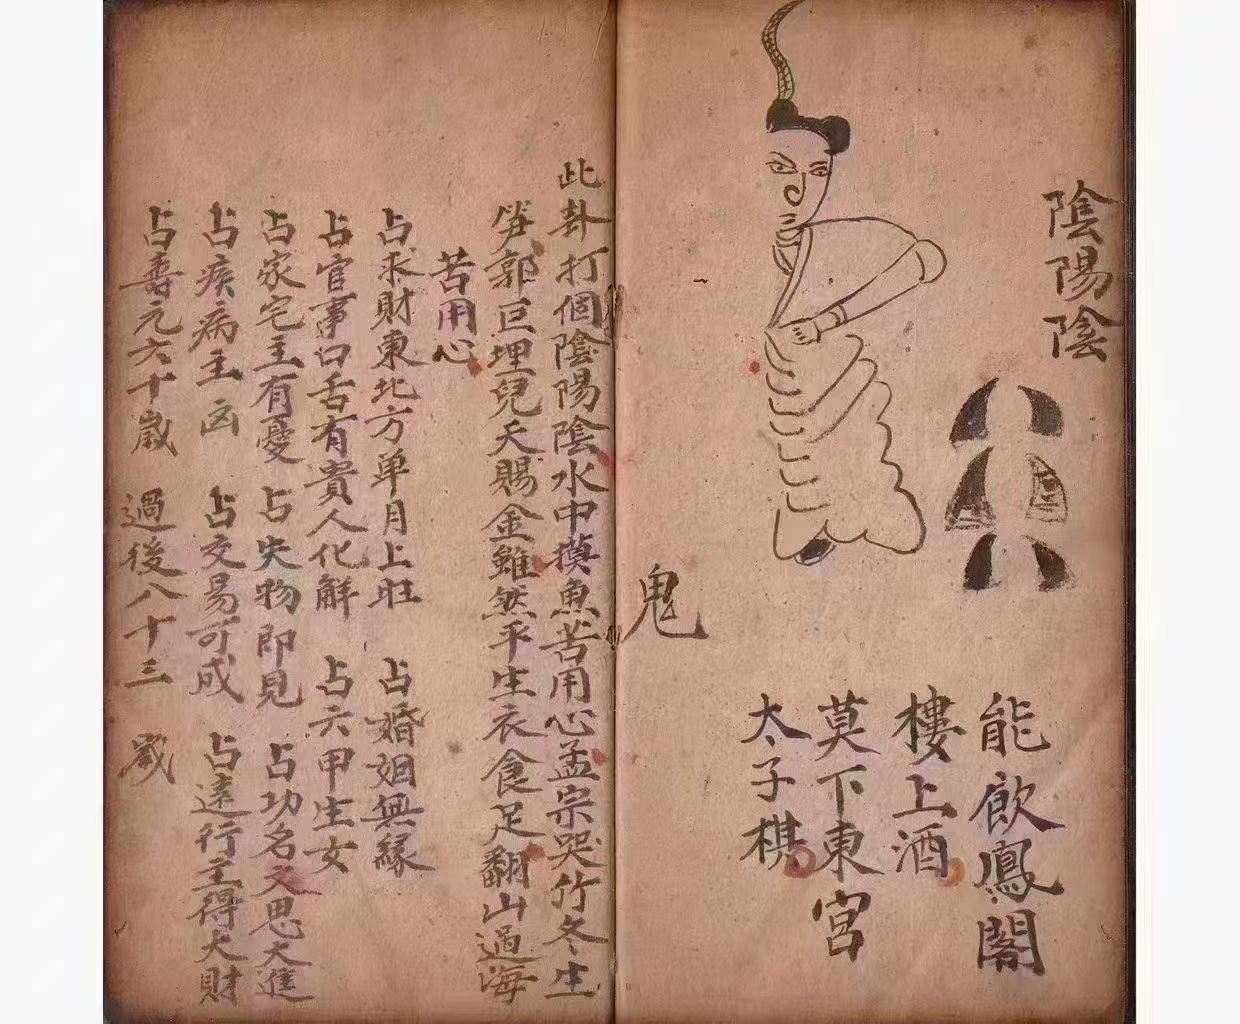 陰陽陰
能飲鳳閣
樓上酒
莫下東宮
太子棋
鬼
此卦打個陰陽陰水中摸魚苦用心孟宗哭竹冬生
笋郭巨埋兒天賜金雖然平生衣食足翻山過海
苦用心
占求財東北方单月上旺 占婚姻無緣
占官事口舌有貴人化解 占六甲生女
占家宅主有憂 占失物即見 占功名文思大進
占疾病主凶 占交易可成 占遠行主得大財
占壽元六十歲 過後八十三 歲